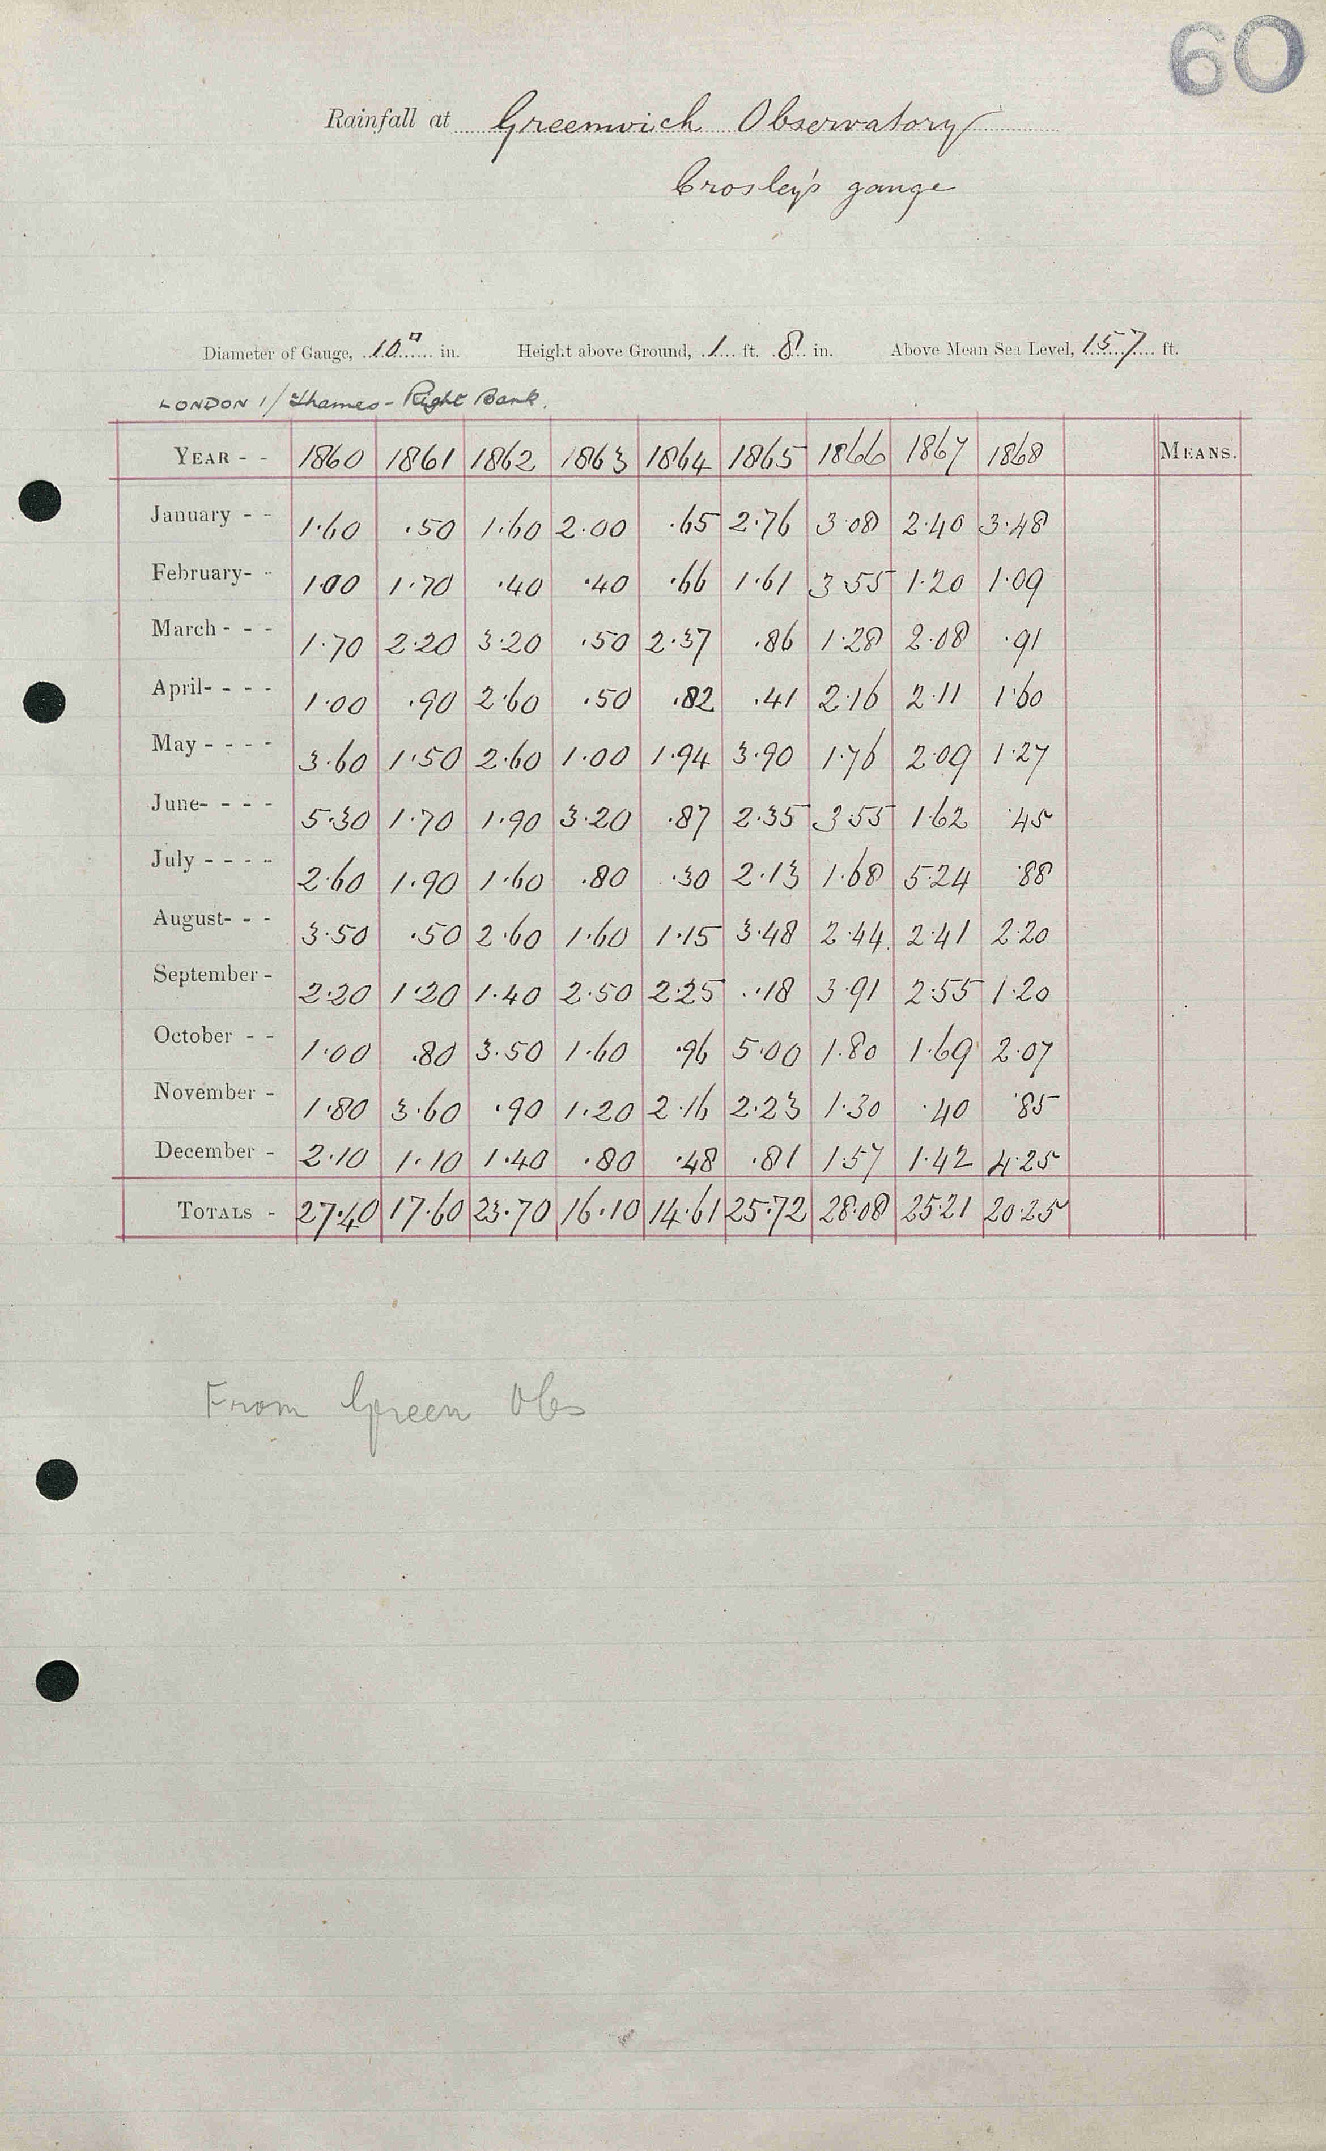 60
Rainfall at Greenwich Observatory
Crosley's gauge
Diameter of Gauge, 10" in. Height above Ground, 1 ft. 8 in. Above Mean Sea Level, 157 ft.
LONDON 1/ Thames - Right Bank.
YEAR - - 1860 1861 1862 1863 1864 1865 1866 1867 1868 MEANS.
January - - 1.60 .50 1.60 2.00 .65 2.76 3.08 2.40 3.48
February- - 1.00 1.70 .40 .40 .66 1.61 3.55 1.20 1.09
March - - - 1.70 2.20 3.20 .50 2.37 .86 1.28 2.08 .91
April- - - - 1.00 .90 2.60 .50 .82 .41 2.16 2.11 1.60
May - - - - 3.60 1.50 2.60 1.00 1.94 3.90 1.76 2.09 1.27
June- - - - 5.30 1.70 1.90 3.20 .87 2.35 3.55 1.62 .45
July - - - - 2.60 1.90 1.60 .80 .30 2.13 1.68 5.24 .88
August- - - 3.50 .50 2.60 1.60 1.15 3.48 2.44 2.41 2.20
September - 2.20 1.20 1.40 2.50 2.25 .18 3.91 2.55 1.20
October - - 1.00 .80 3.50 1.60 .96 5.00 1.80 1.69 2.07
November - 1.80 3.60 .90 1.20 2.16 2.23 1.30 .40 .85
December - 2.10 1.10 1.40 .80 .48 .81 1.57 1.42 4.25
TOTALS - 27.40 17.60 23.70 16.10 14.61 25.72 28.08 25.21 20.25
From Green Obs